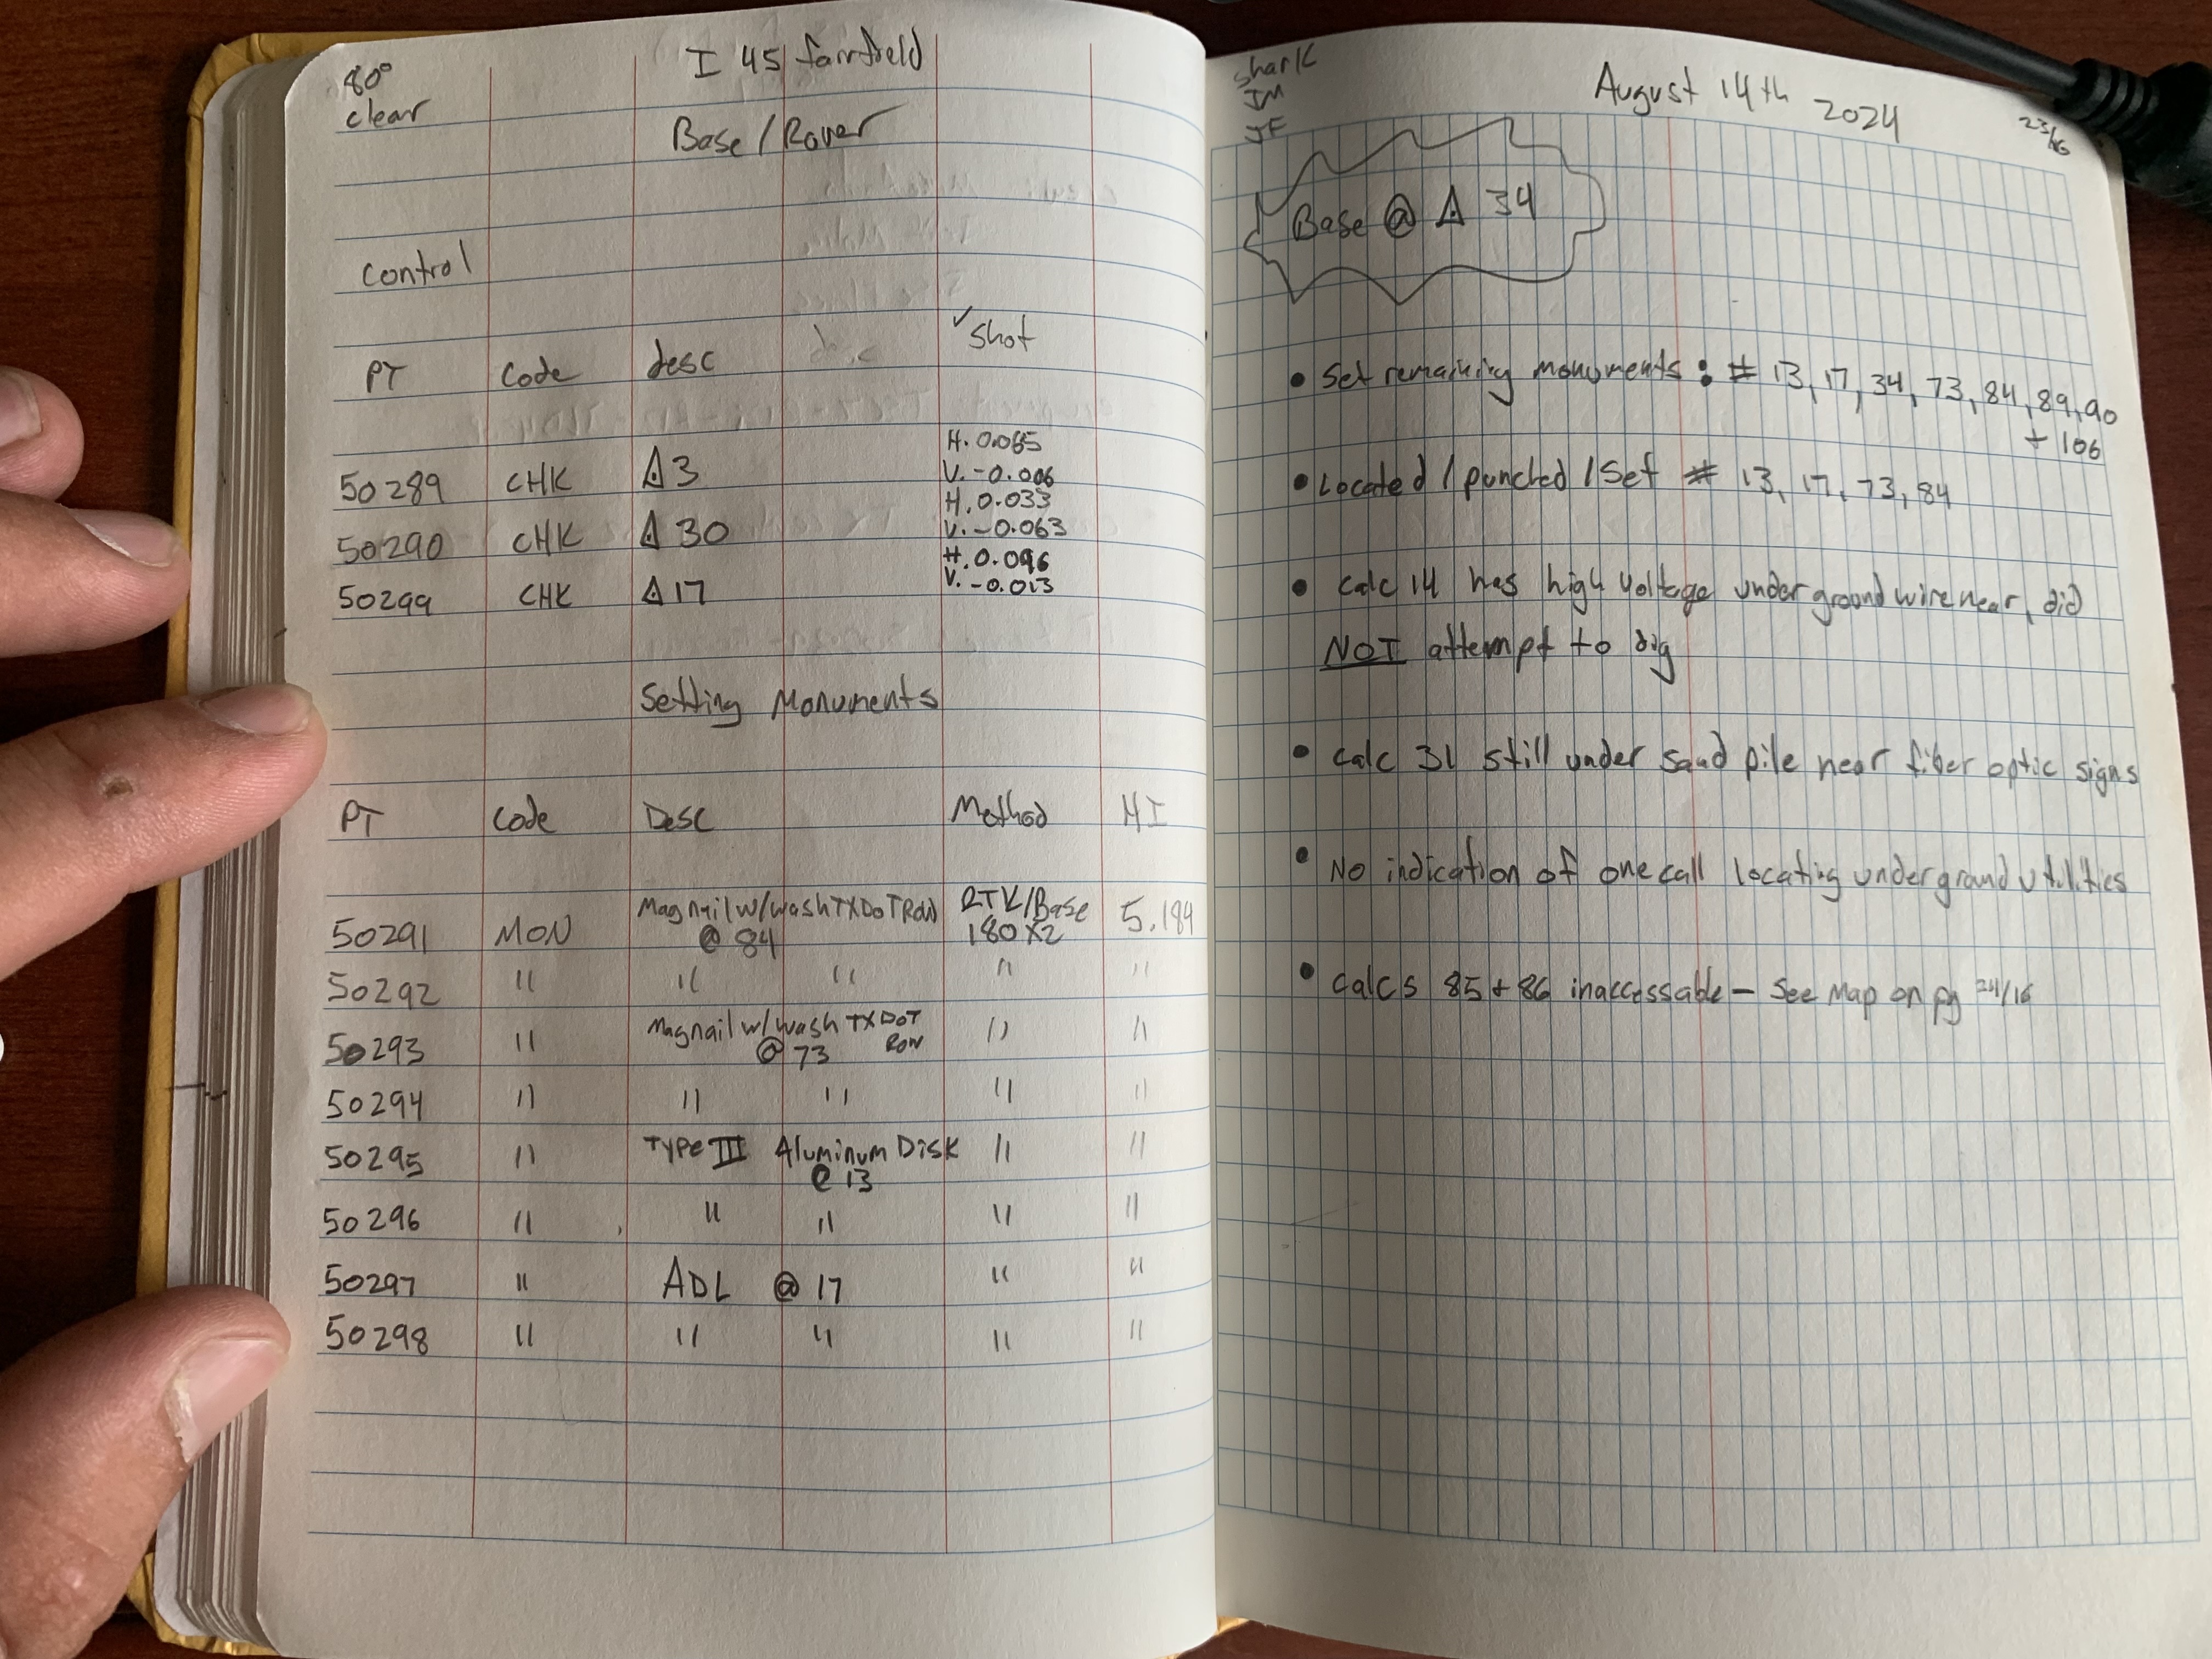 80°
clear
I 45 fairfield
Base / Rover
Control
PT Code desc ✓ shot
50289 CHK △ 3 H. 0.065 V. -0.006
50290 CHK △ 30 H. 0.033 V. -0.063
50299 CHK △ 17 H. 0.096 V. -0.013
Setting Monuments
PT Code Desc Method HI
50291 MON Magnail w/wash TXDOT ROW @ 84 RTK/Base 180 X2 5.184
50292 " " " " "
50293 " Magnail w/wash TXDOT ROW @ 73 " "
50294 " " " " "
50295 " Type III Aluminum Disk @ 13 " "
50296 " " " " "
50297 " ADL @ 17 " "
50298 " " " " "
Shark
JM
JF
August 14th 2024
23/16
Base @ △ 34
• Set remaining monuments: # 13, 17, 34, 73, 84, 89, 90
+ 106
• Located / punched / Set # 13, 17, 73, 84
• Calc 14 has high voltage underground wire near, did
NOT attempt to dig
• Calc 31 still under sand pile near fiber optic signs
• No indication of one call locating underground utilities
• Calcs 85 + 86 inaccessable - See Map on pg 24/16